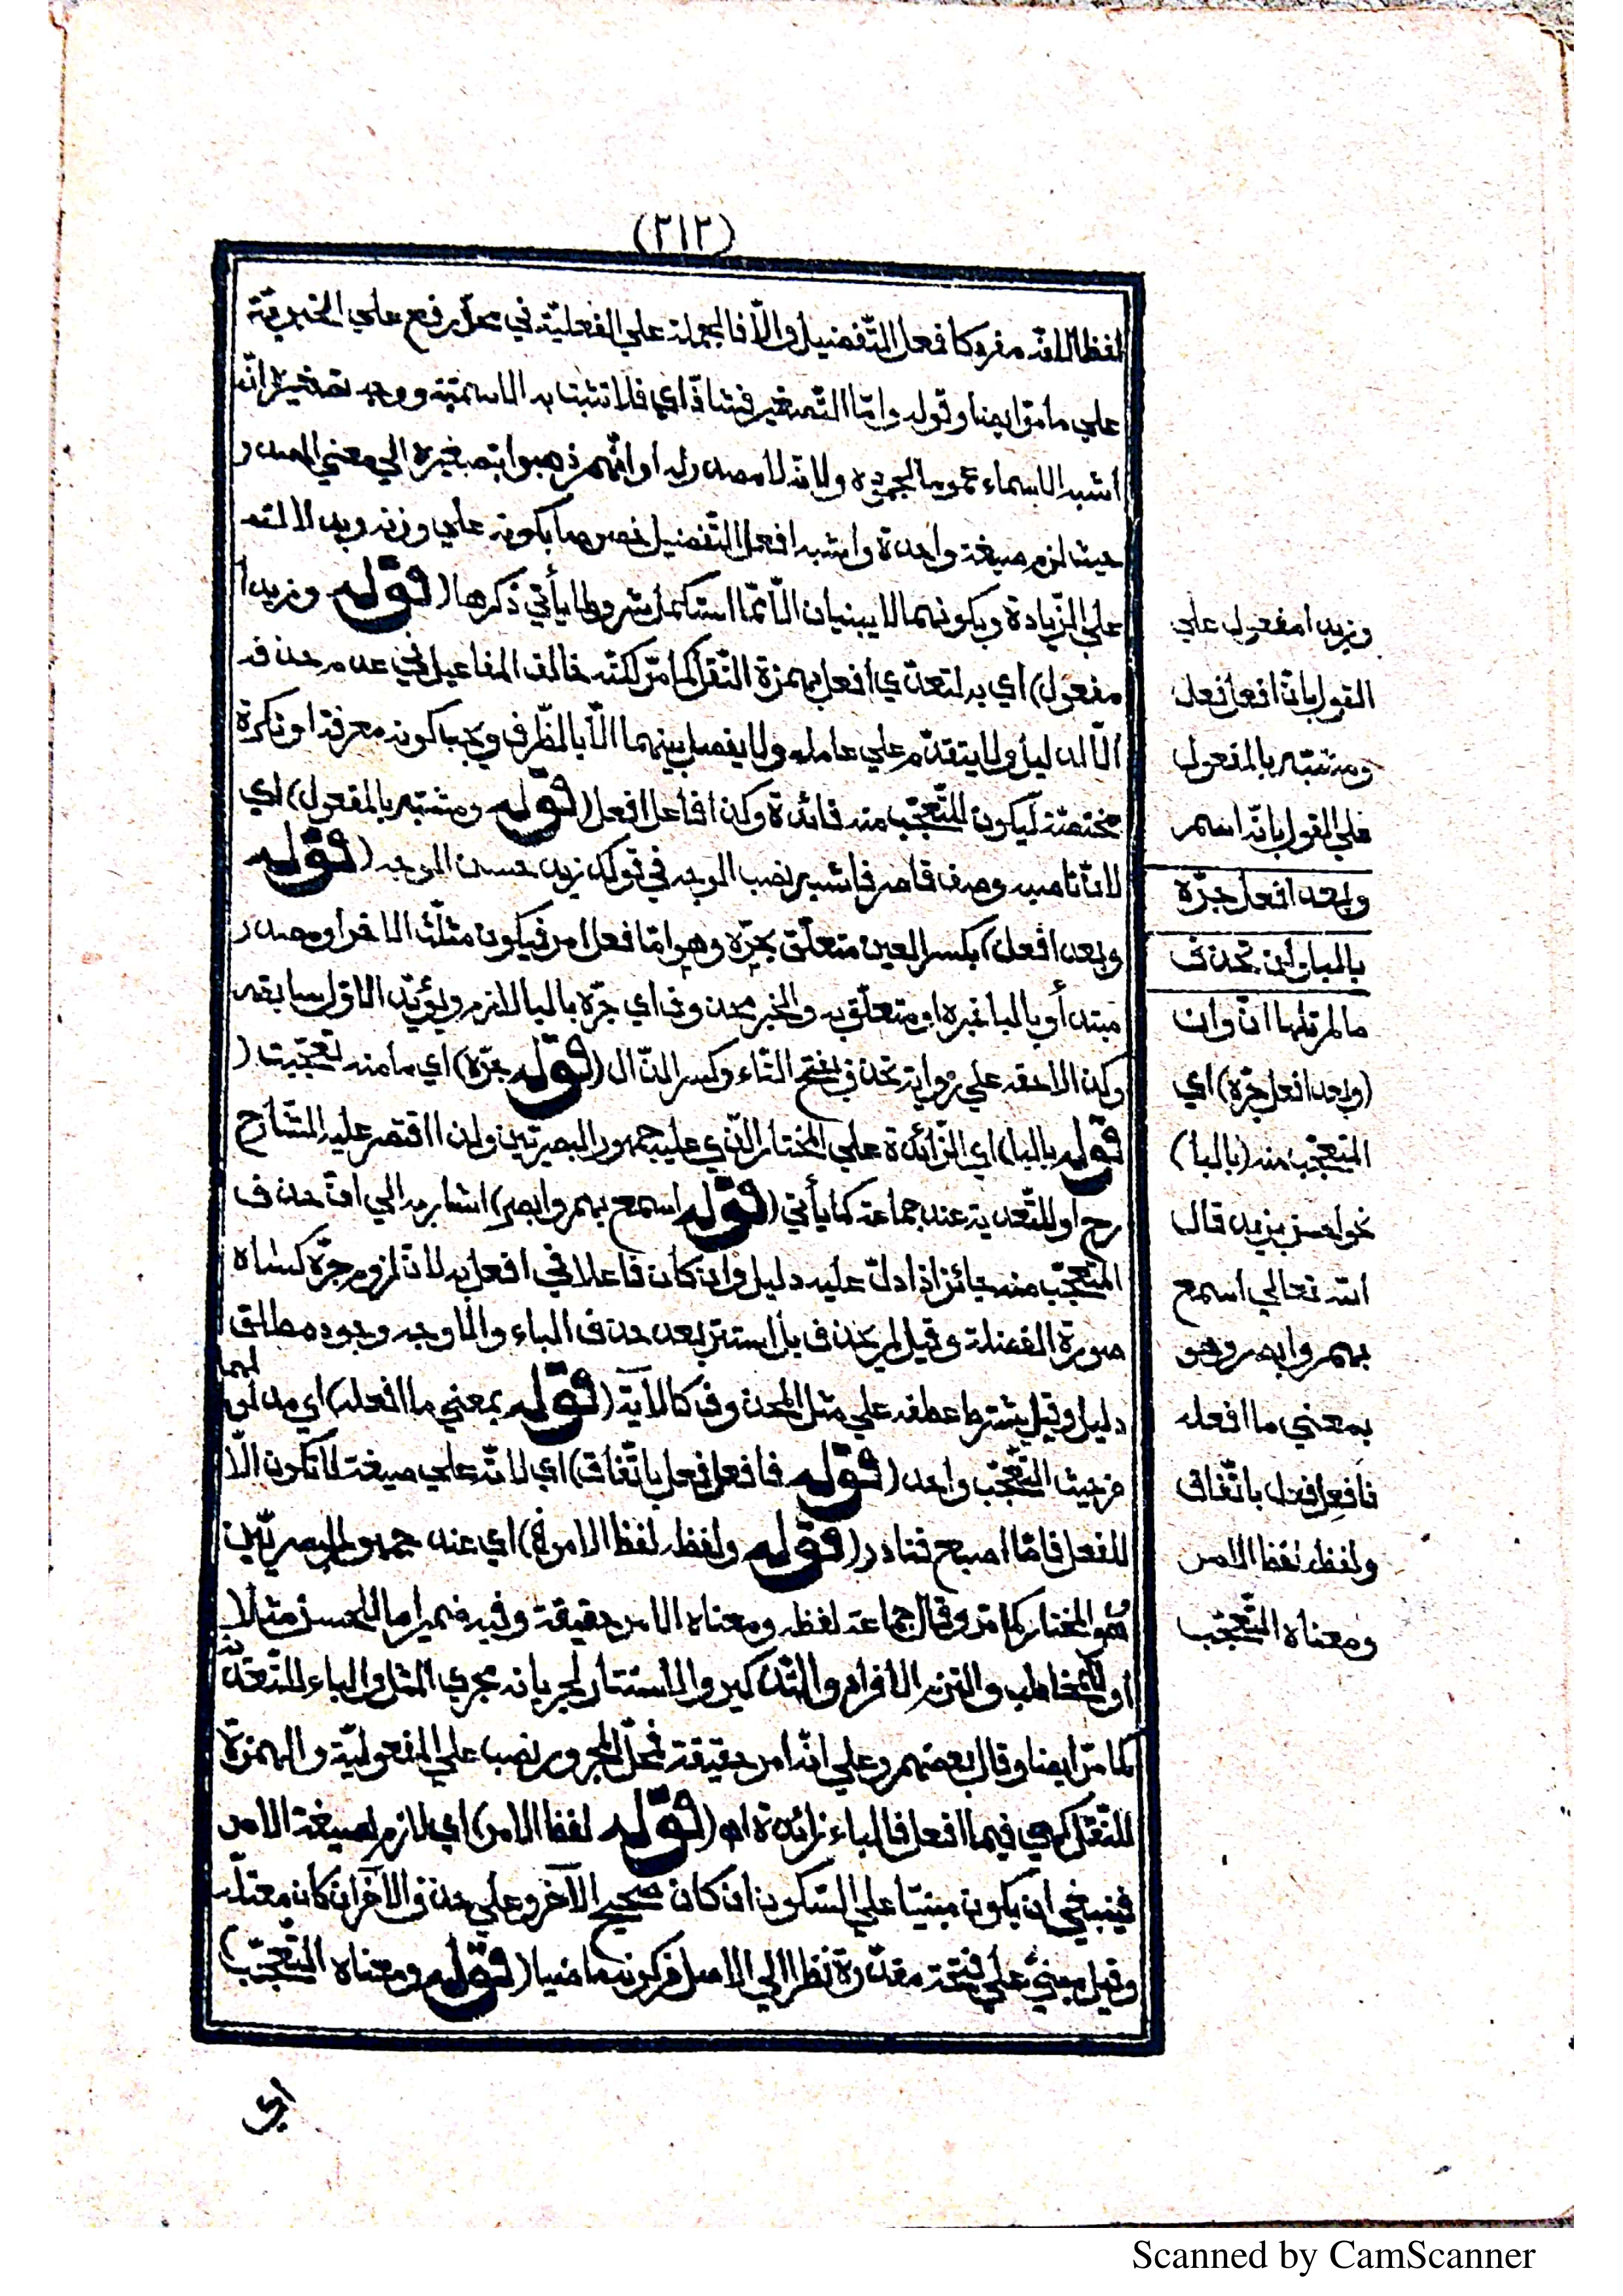 (٢١٢)
لفظا لانّه مفرد كافعل التّفضيل والّا فالجملة علي الفعليّة في محلّ رفع علي الخبريّة
علي ما مرّ ايضا وقوله وامّا التّصغير فشاذّ اي فلا تثبت به الاسميّة ووجه تصغيره انّه
اشبه الاسماء عموما بجموده ولانّه لا مصدر له او انّهم ذهبوا بتصغيره الي معني المصدر
حيث لزم صيغة واحدة واشبه افعل التّفضيل خصوصا بكونه علي وزنه وبدلالته
علي الزّيادة وبكونهما لا يبنيان الّا ممّا استكمل شروطا يأتي ذكرها (قوله وزيدا
مفعول) اي به لتعدّي افعل بهمزة النّقل كما مرّ لكنّه خالف المفاعيل في عدم حذفه
الّا لدليل ولا يتقدّم علي عامله ولا يفصل بينهما الّا بالظّرف ويجب كونه معرفة او نكرة
مختصّة ليكون للتّعجّب منه فائدة وكذا فاعل افعل (قوله ومشبّه بالمفعول) اي
لانّ ناصبه وصف قاصر فاشبه نصب الوجه في قولك زيد حسن الوجه (قوله
وبعد افعل) بكسر العين متعلّق بجرّه وهو امّا فعل امر فيكون مثلّث الاخر او مصدر
مبتدأ وبالبا خبره او متعلّق به والخبر محذوف اي جرّه بالبا لازم ويؤيّد الاوّل سابقه
وكذا لاحقه علي رواية تحذف بفتح التّاء وكسر الذّال (قوله جرّه) اي ما منه تعجّبت (
قوله بالبا) اي الزّائدة علي المختار الّذي عليه جمهور البصريّين ولذا اقتصر عليه الشّارح
رح او للتّعدية عند جماعة كما يأتي (قوله اسمع بهم وابصر) اشار به الي انّ حذف
المتعجّب منه جائز اذا دلّ عليه دليل وان كان فاعلا في افعل به لانّ لزوم جرّه كساه
صورة الفضلة وقيل لم يحذف بل استتر بعد حذف الباء والاوجه وجود مطلق
دليل وقيل يشترط عطفه علي مثل المحذوف كالآية (قوله بمعني ما افعله) اي مدلولهما
من حيث التّعجّب واحد (قوله فافعل فعل باتّفاق) اي لانّه علي صيغة لا تكون الّا
للفعل فامّا اصبع فنادر (قوله ولفظه لفظ الامر الخ) اي عند جمهور البصريّين
وهو المختار كما مرّ وقال جماعة لفظه ومعناه الامر حقيقة وفيه ضمير امّا للحسن مثلا
او للمخاطب والتزم الافراد والتّذكير والاستتار لجريانه مجري المثل والباء للتّعدية
كما مرّ ايضا وقال بعضهم وعلي انّه امر حقيقة فمحلّ المجرور نصب علي المفعوليّة والهمزة
للنّقل كهي في ما افعل فالباء زائدة اه (قوله لفظ الامر) اي لازم لصيغة الامر
فينبغي ان يكون مبنيّا علي السّكون ان كان صحيح الآخر وعلي حذف الآخر ان كان معتلّه
وقيل مبنيّ علي فتحة مقدّرة نظرا الي الاصل من كونه ماضيا (قوله ومعناه التّعجّب)
اي
وزيدا مفعول علي
القول بانّ افعل فعل
ومشبّه بالمفعول
علي القول بانّه اسم
وبعد افعل جرّه
بالبا وان تحذف
(وبعد افعل جرّه) اي
المتعجّب منه (بالبا)
نحو احسن بزيد قال
الله تعالي اسمع
بهم وابصر وهو
بمعني ما افعله
فافعل فعل باتّفاق
ولفظه لفظ الامر
ومعناه التّعجّب